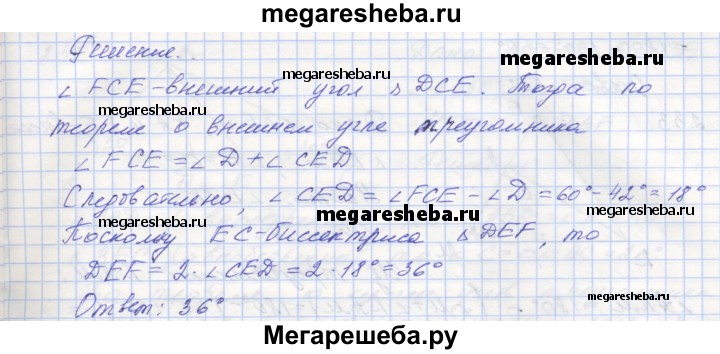 megaresheba.ru
Решение.
megaresheba.ru
megaresheba.ru
∠ FCE - внешний угол △ DCE. Тогда по
megaresheba.ru
теореме о внешнем угле треугольника
∠ FCE = ∠ D + ∠ CED
Следовательно, ∠ CED = ∠ FCE - ∠ D = 60° - 42° = 18°
megaresheba.ru
megaresheba.ru
Поскольку EC - биссектриса △ DEF, то
DEF = 2 · ∠ CED = 2 · 18° = 36°
megaresheba.ru
Ответ: 36°
megaresheba.ru
Мегарешеба.ру